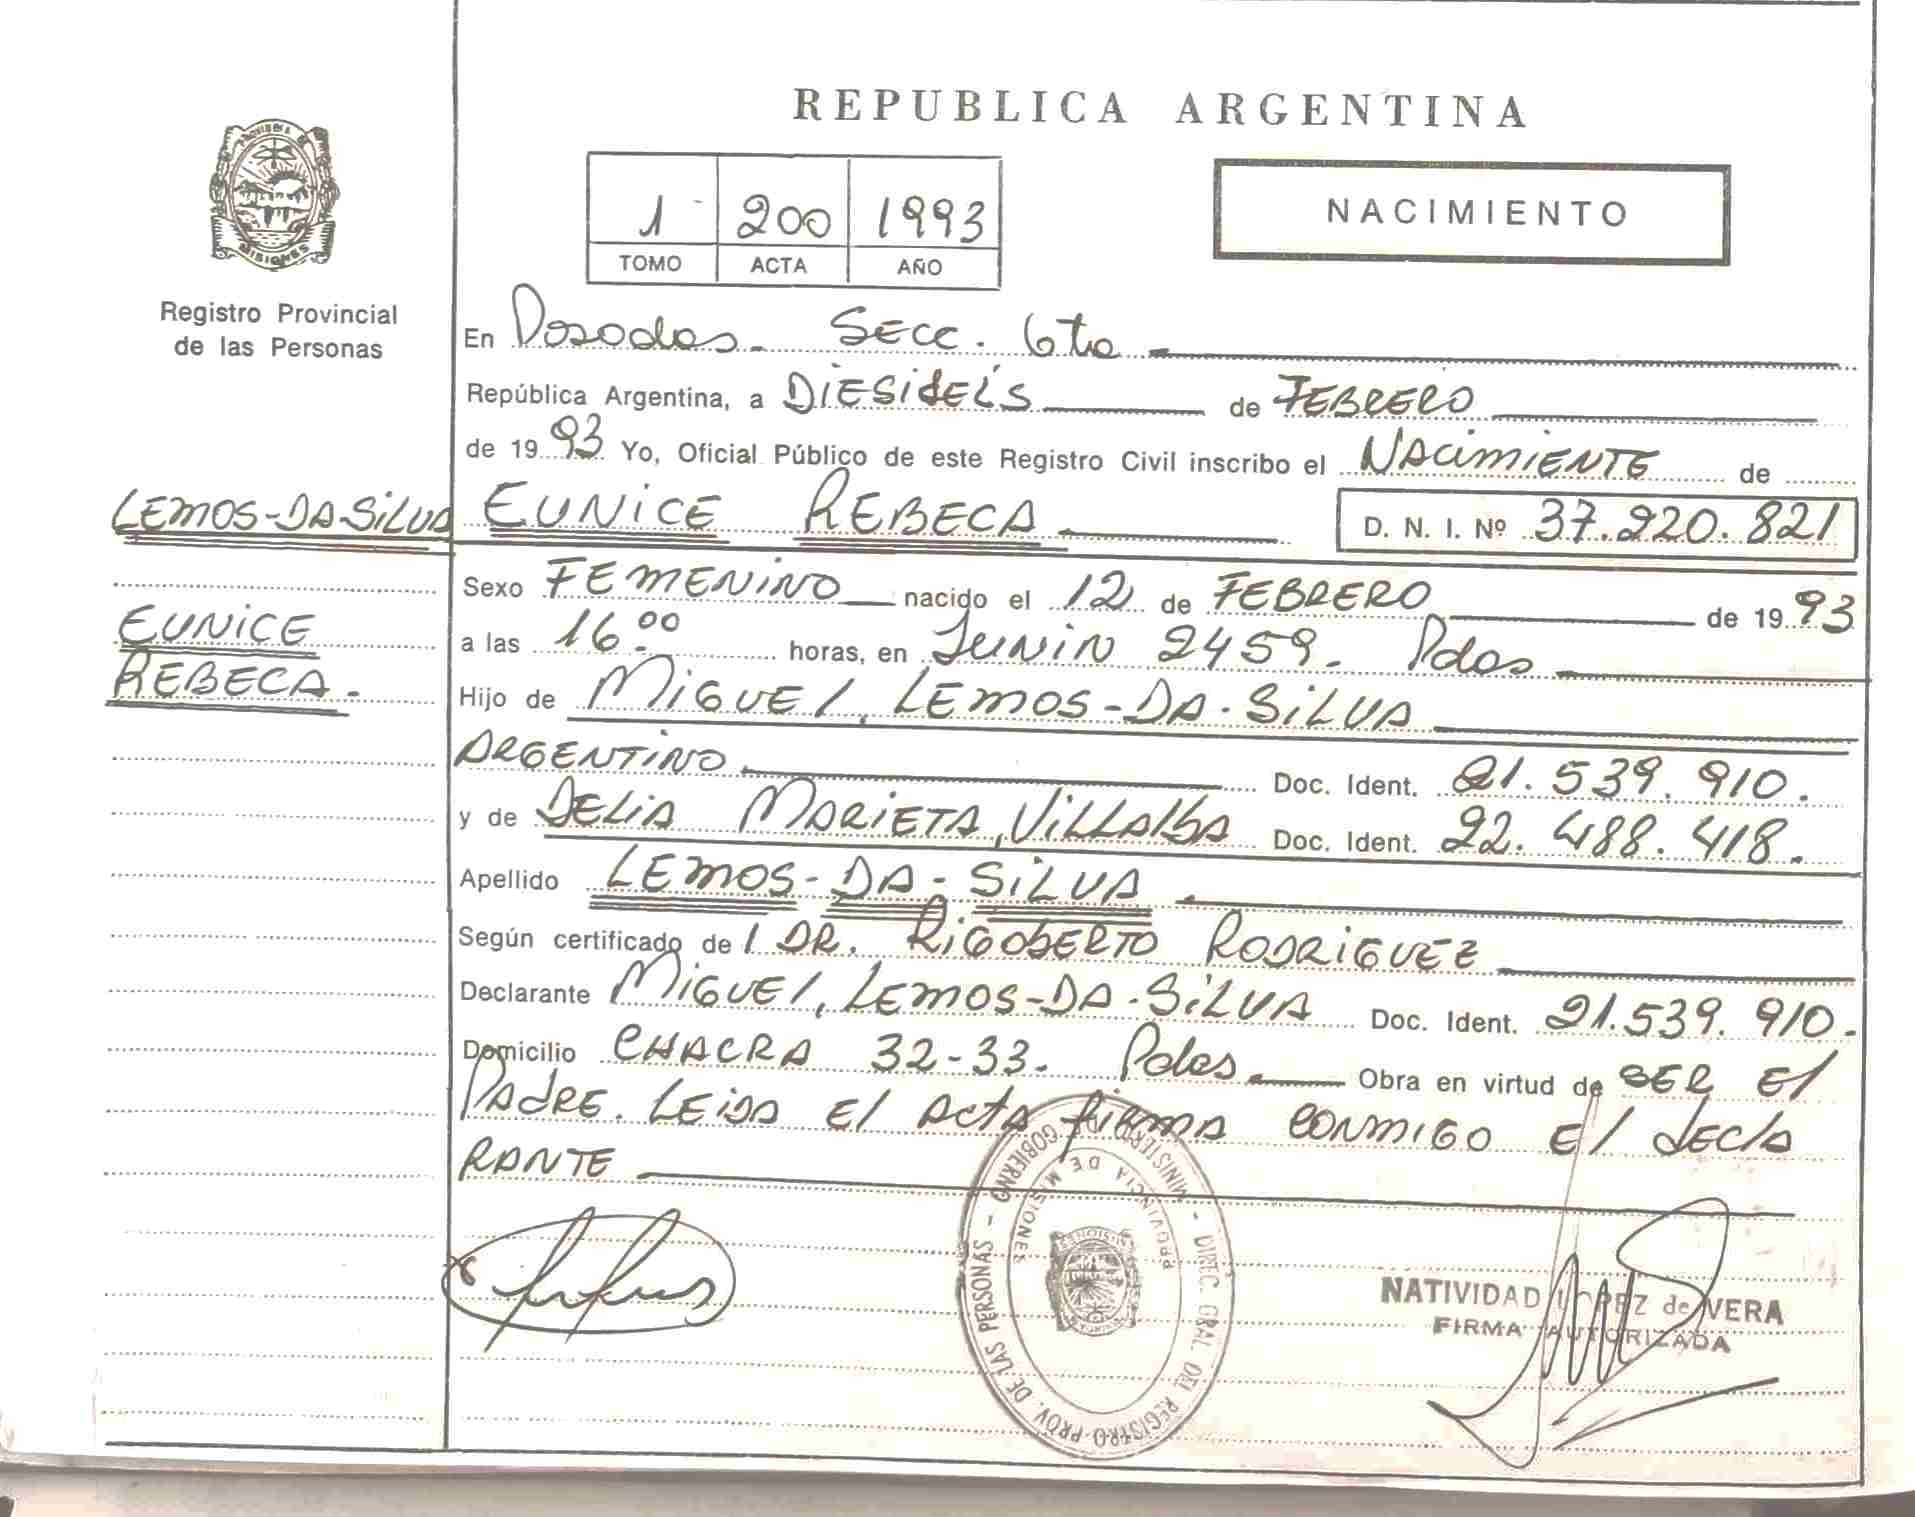 REPUBLICA ARGENTINA
PROVINCIA DE
MISIONES
Registro Provincial
de las Personas
1 200 1993
TOMO ACTA AÑO
NACIMIENTO
En Posadas. SECC. 6ta
República Argentina, a DIESISEIS de FEBRERO
de 1993 Yo, Oficial Público de este Registro Civil inscribo el NACIMIENTE de
LEMOS-DA SILVA EUNICE REBECA D. N. I. Nº 37.220.821
Sexo FEMENINO nacido el 12 de FEBRERO de 1993
EUNICE
REBECA.
a las 16.00 horas, en JUNIN 2459. Pdas
Hijo de MIGUEL, LEMOS-DA-SILVA
ARGENTINO Doc. Ident. 21.539.910.
y de DELIA MARIETA, VILLALBA Doc. Ident. 22.488.418.
Apellido LEMOS-DA-SILVA.
Según certificado de l DR. RIGOBERTO RODRIGUEZ
Declarante MIGUEL, LEMOS-DA-SILVA Doc. Ident. 21.539.910.
Domicilio CHACRA 32-33. Pdas. Obra en virtud de SER El
PADRE. LEIDA El ACTA FIRMA CONMIGO El decla
RANTE
MINISTERIO DE GOBIERNO - DIREC. GRAL. DEL REGISTRO PROV. DE LAS PERSONAS -
PROVINCIA DE MISIONES
NATIVIDAD LOPEZ de VERA
FIRMA AUTORIZADA